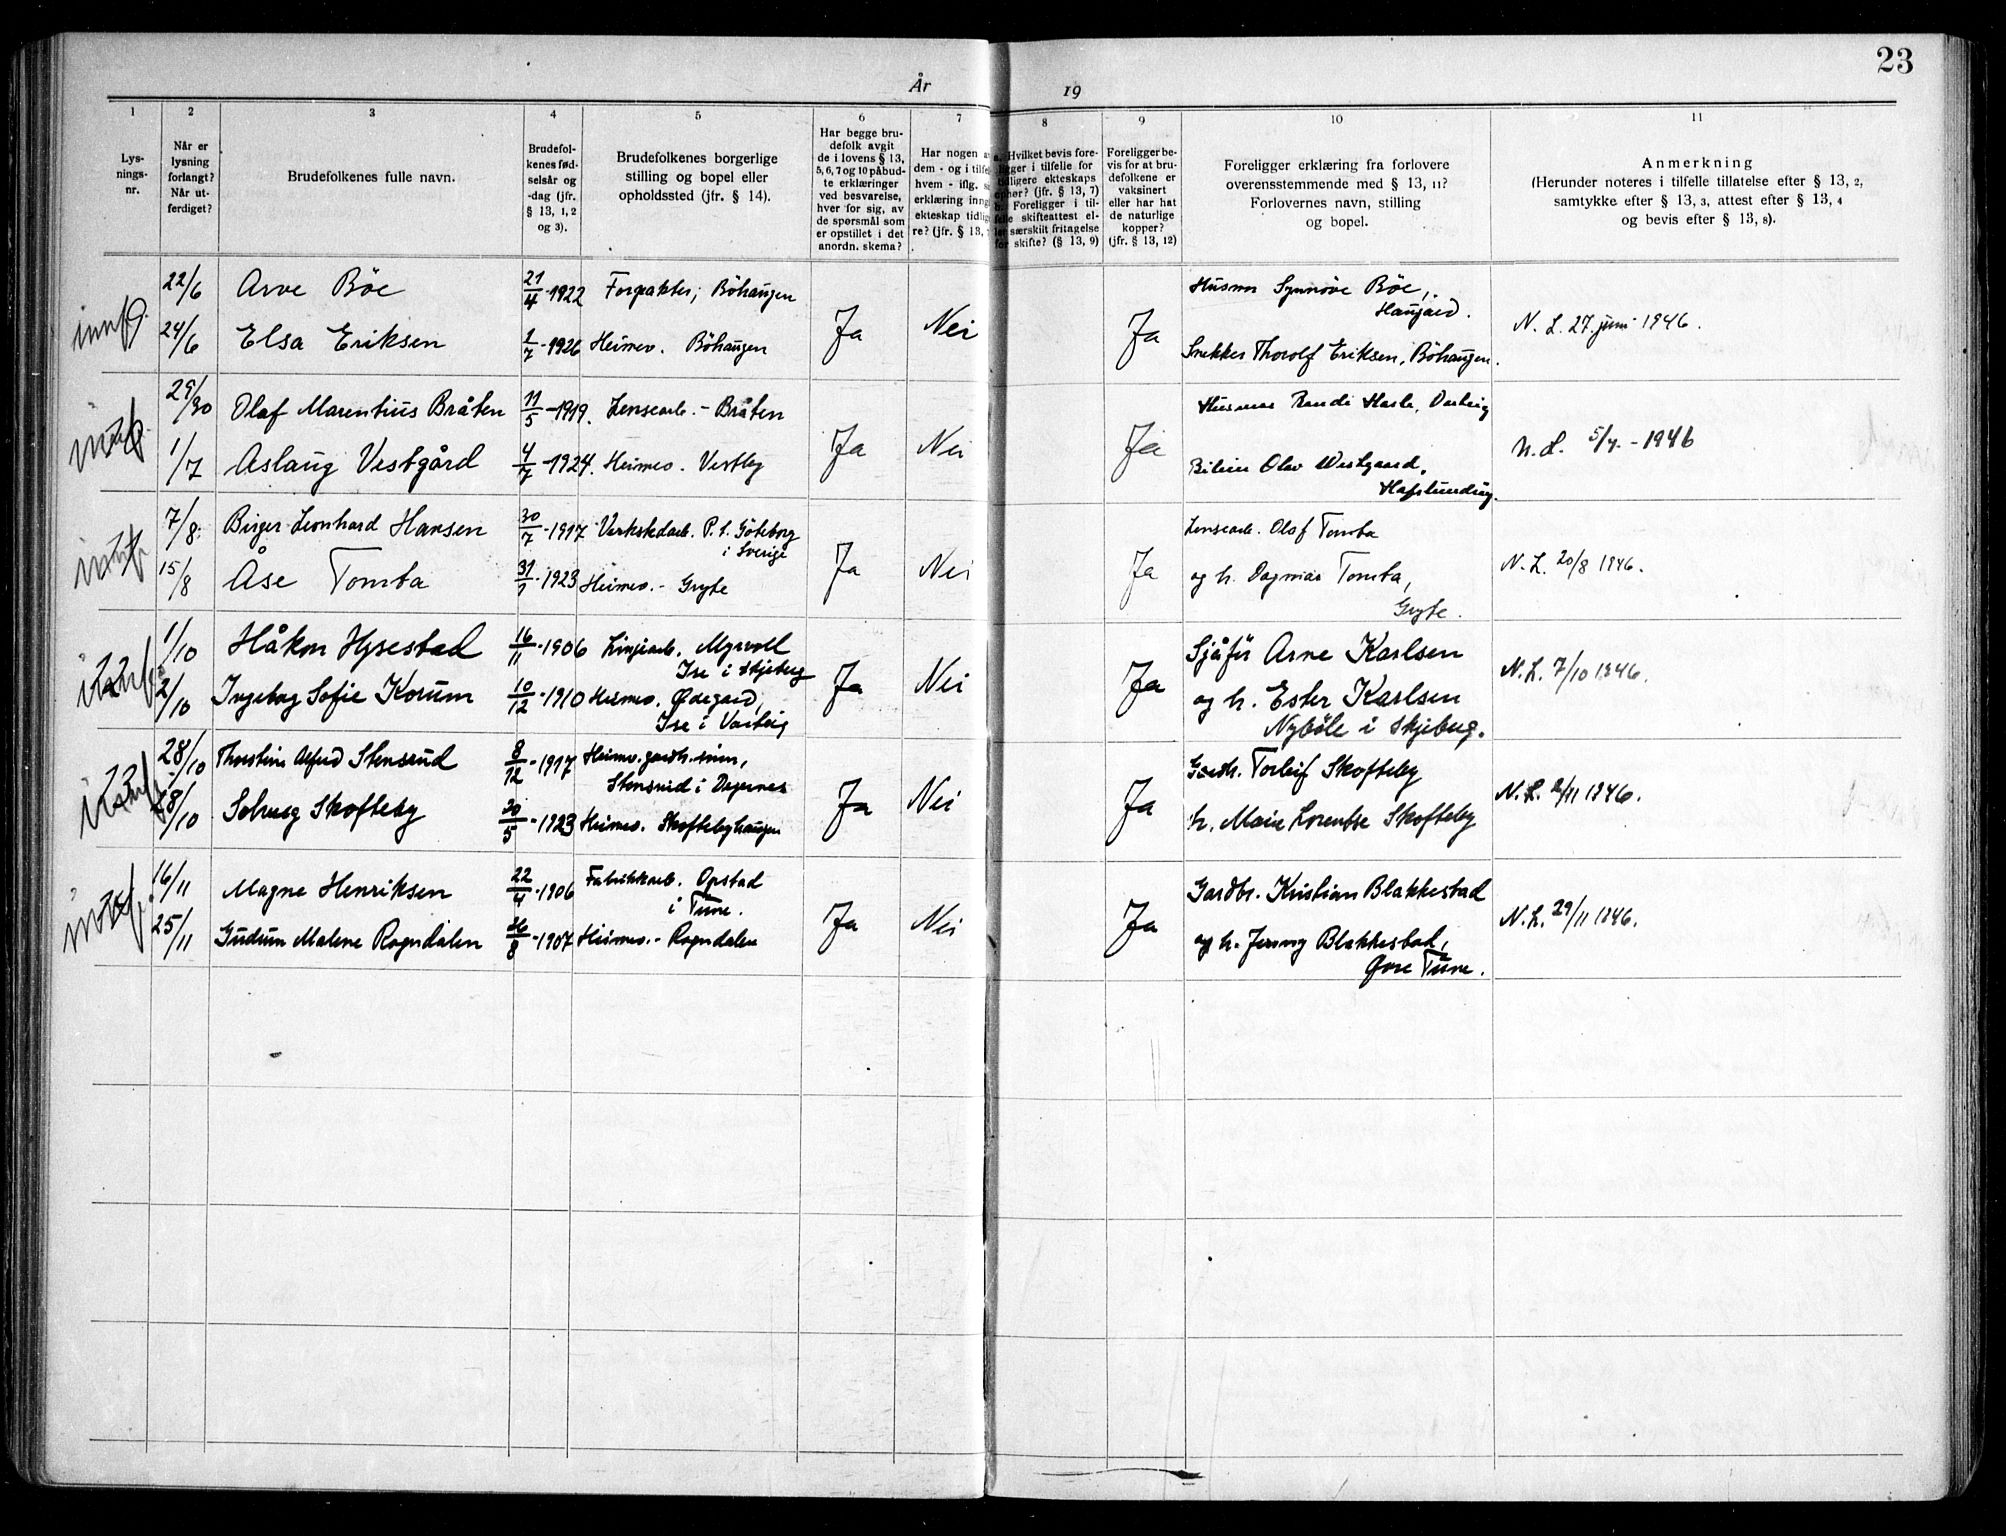 23
År 19
1 2 3 4 5 6 7 8 9 10 11
Lys-
nings-
nr.
Når er
lysning
forlangt?
Når ut-
ferdiget?
Brudefolkenes fulle navn.
Brudefol-
kenes fød-
selsår og
-dag (jfr.
§ 13, 1, 2
og 3).
Brudefolkenes borgerlige
stilling og bopel eller
opholdssted (jfr. § 14).
Har begge bru-
defolk avgit
de i lovens § 13,
5, 6, 7 og 10 påbud-
te erklæringer
ved besvarelse,
hver for sig, av
de spørsmål som
er opstillet i det
anordn. skema?
Har nogen
dem - og i
hvem - iflg.
erklæring
ekteskap
re? (jfr. § 13,
Hvilket bevis fore-
i tilfelle for
ekteskaps
(jfr. § 13, 7)
Foreligger i til-
skifteattest el-
særskilt fritagelse
for skifte? (§ 13, 9)
Foreligger be-
vis for at bru-
defolkene er
vaksinert
eller har hat
de naturlige
kopper?
(jfr. § 13, 12)
Foreligger erklæring fra forlovere
overensstemmende med § 13, 11?
Forlovernes navn, stilling
og bopel.
Anmerkning
(Herunder noteres i tilfelle tillatelse efter § 13, 2,
samtykke efter § 13, 3, attest efter § 13, 4
og bevis efter § 13, 8).
22/6 Arve Böe 21/4-1922 Forpakter, Böhaugen Husmor Synnöve Böe,
Haugård.
24/6 Elsa Eriksen 2/7-1926 Heimev. Böhaugen Ja Nei Ja Snekker Thorolf Eriksen, Böhaugen. N. L. 27. juni 1946.
29/ Olaf Marentius Bråten 11/5-1919. Lensearb. - Bråten Husmor Randi Hasle, Varteig
1/7 Aslaug Vestgård 4/7-1924. Heimev. Vestby Ja Nei Ja Olav Westgaard, N. L. 5/7. - 1946
7/8. Birger Leonhard Hansen 30/7-1917 Verkstedarb. P. t. Göteborg
i Sverige Lensearb. Olaf Tomba
15/8 Åse Tomba 1923 Heimev. - Gryte Ja Nei Ja og h. Dagmar Tomba,
Gryte. N. L. 20/8 1946.
1/10 Håkon Hysestad 16/11-1906 Linjearb. Myrvoll
Ise i Skjeberg Sjåfør Arne Karlsen
2/10 Ingeborg Sofie Korum 10/12-1910 Heimev. Ødegård,
Ise i Varteig Ja Nei Ja og h. Ester Karlsen
Nyböle i Skjeberg. N. L. 7/10 1946.
28/10 Thorstein Alfred Stensrud 8/12-1917 Heimev.
Stensrud i Degernes Gardbr. Torleif Skofteby
28/10 Solveig Skofteby 30/5-1923 Heimev. Skoftebyhaugen Ja Nei Ja h. Marie Lorentse Skofteby N. L. /11 1946.
16/11 Magne Henriksen 22/4-1906 Fabrikkarb. Opstad
i Tune. Gardbr. Kristian Blakkestad
25/11 Gudrun Malene Rogndalen 26/8-1907 Heimev. - Rogndalen Ja Nei Ja og h. Jenny Blakkestad,
Tune. N. L. 29/11 1946.